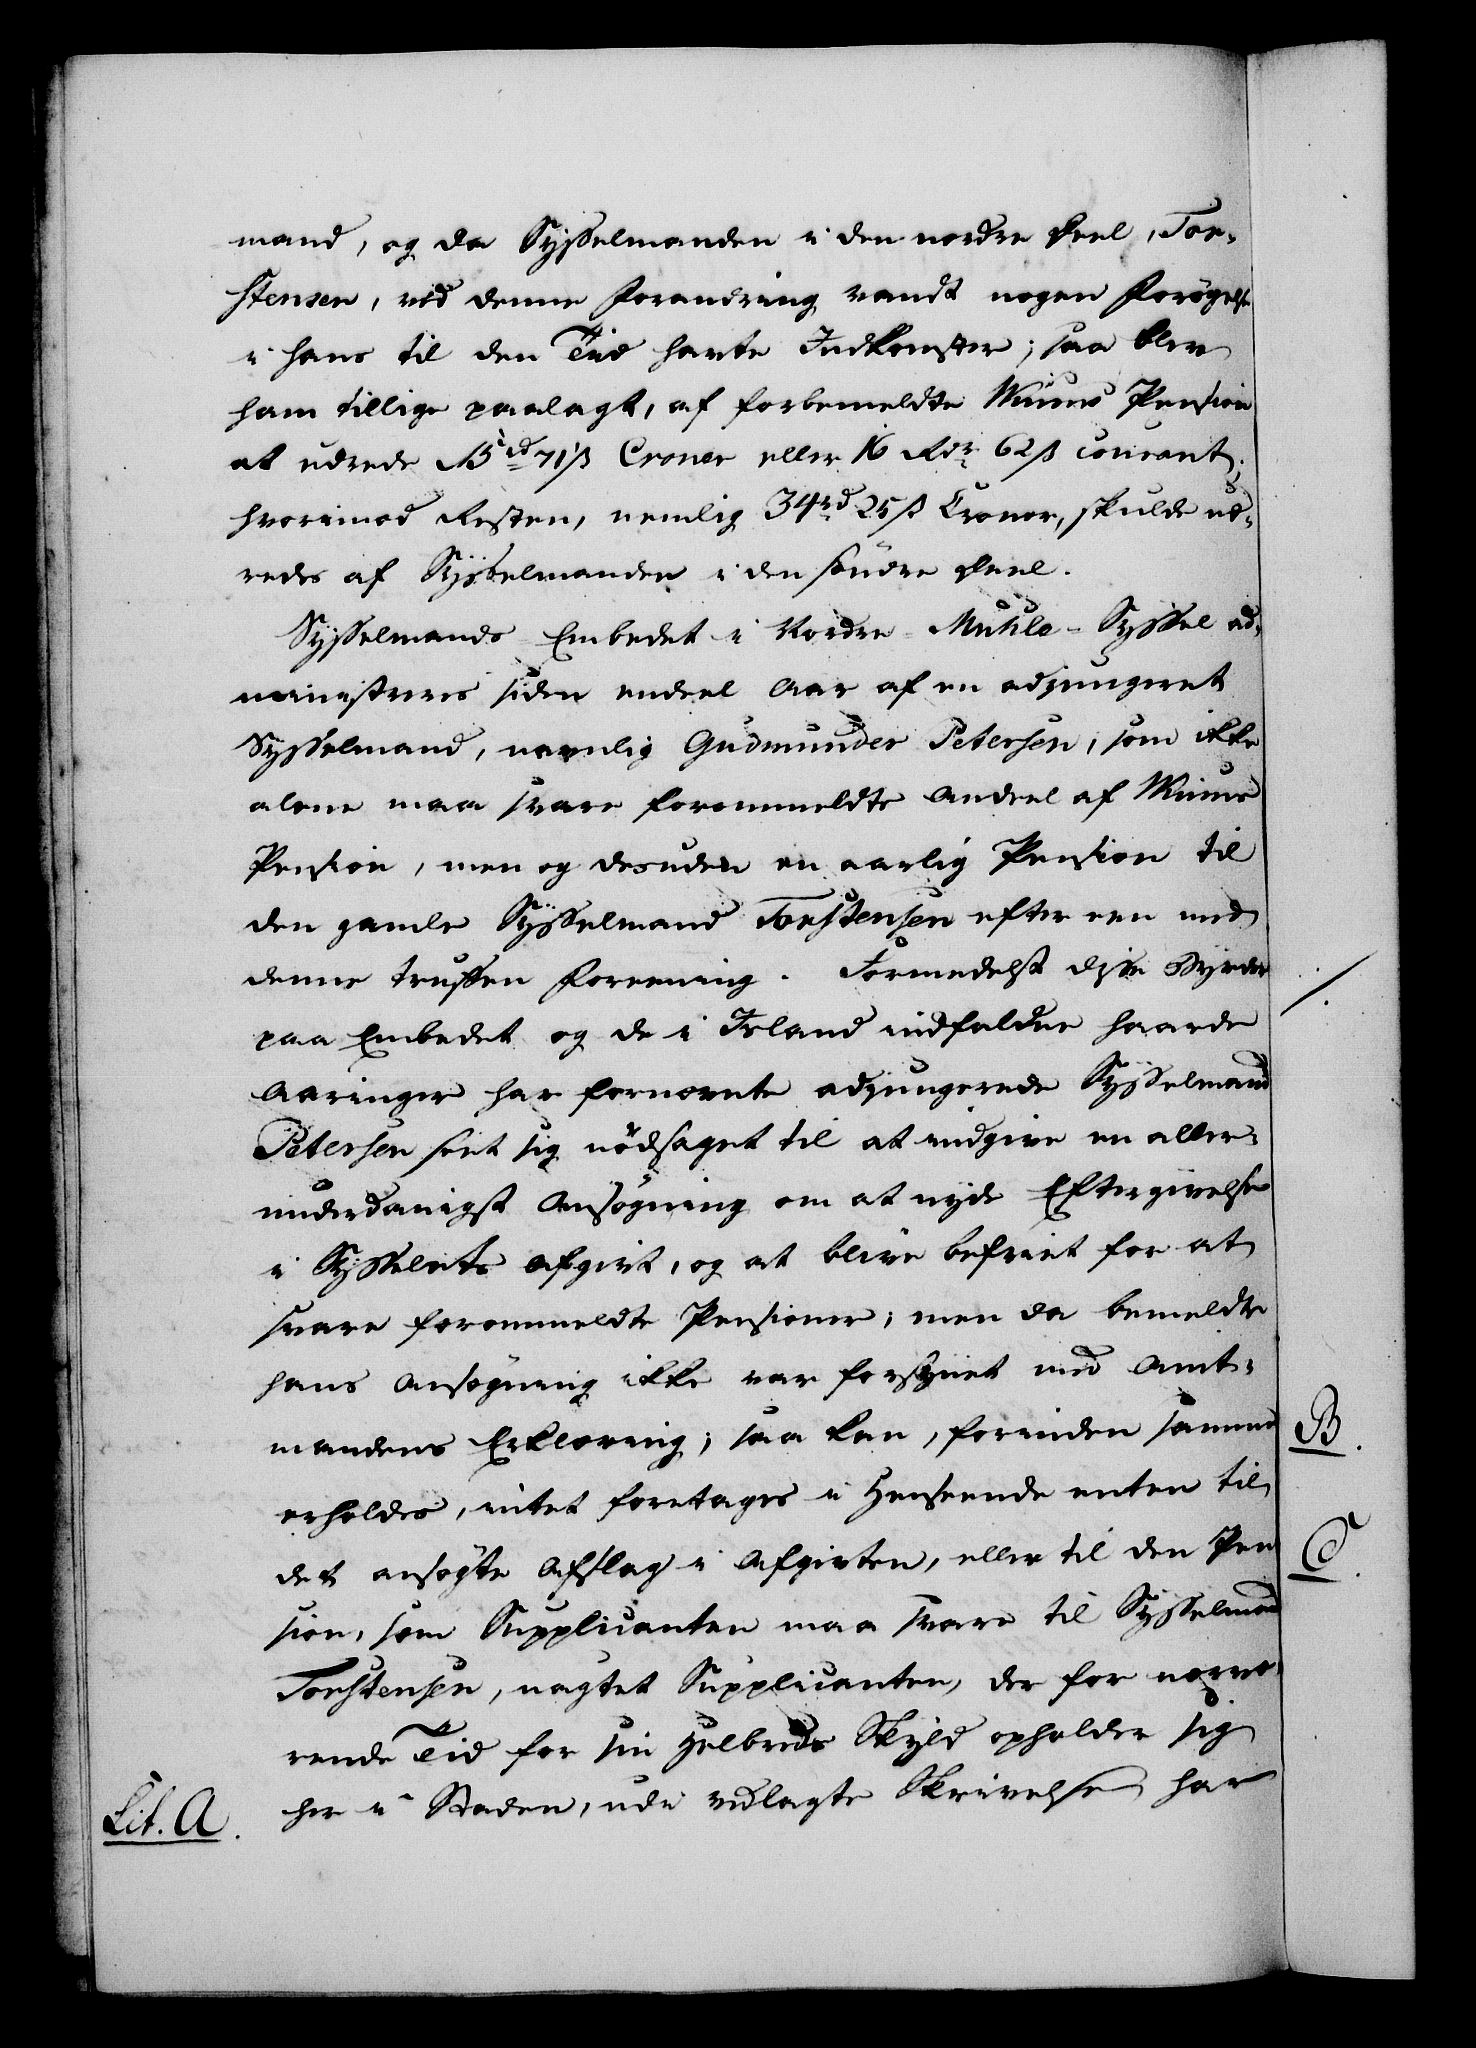 mand, og da Sysselmanden i den nordre Deel, Tor-
stensen, ved denne Forandring vandt nogen Forøgelse
i hans til den Tiid havte Indkomster; saa blev
ham tillige paalagt, af forbemeldte Wiums Pension
at udrede 15 rd 71 ß Croner eller 16 Rdr 62 ß courant;
hvorimod Resten, nemlig 34 rd 25 ß Croner, skulde ud-
redes af Sysselmanden i den søndre Deel.
Sysselmands Embedet i Nordre-Muhle-Syssel ad-
ministreres siden endeel Aar af en adjungeret
Sysselmand, navnlig Gudmunder Petersen, som ikke
alene maa svare forommeldte Andeel af Wiums
Pension, men og desuden en aarlig Pension til
den gamle Sysselmand Torstensen efter een med
denne truffen Foreening. Formedelst disse Byrder
paa Embedet og de i Island indfaldne haarde
Aaringer har fornevnte adjungerede Sysselmand
Petersen seet sig nødsaget til at indgive en aller-
underdanigst Ansøgning om at nyde Eftergivelse
i Sysselets Afgivt, og at blive befriet for at
svare forommeldte Pensioner; men da bemeldte
hans Ansøgning ikke var forsynet med Amt-
mandens Erklæring; saa kan, forinden samme
erholdes, intet foretages i Henseende enten til
det ansøgte Afslag i Afgivten, eller til den Pen
sion, som Supplicanten maa svare til Sysselmand
Torstensen, uagtet Supplicanten, der for nærvæ-
rende Tid for sin Helbreds Skyld opholder sig
her i Staden, udi vedlagte Skrivelse har
Lit. A.
B.
C.